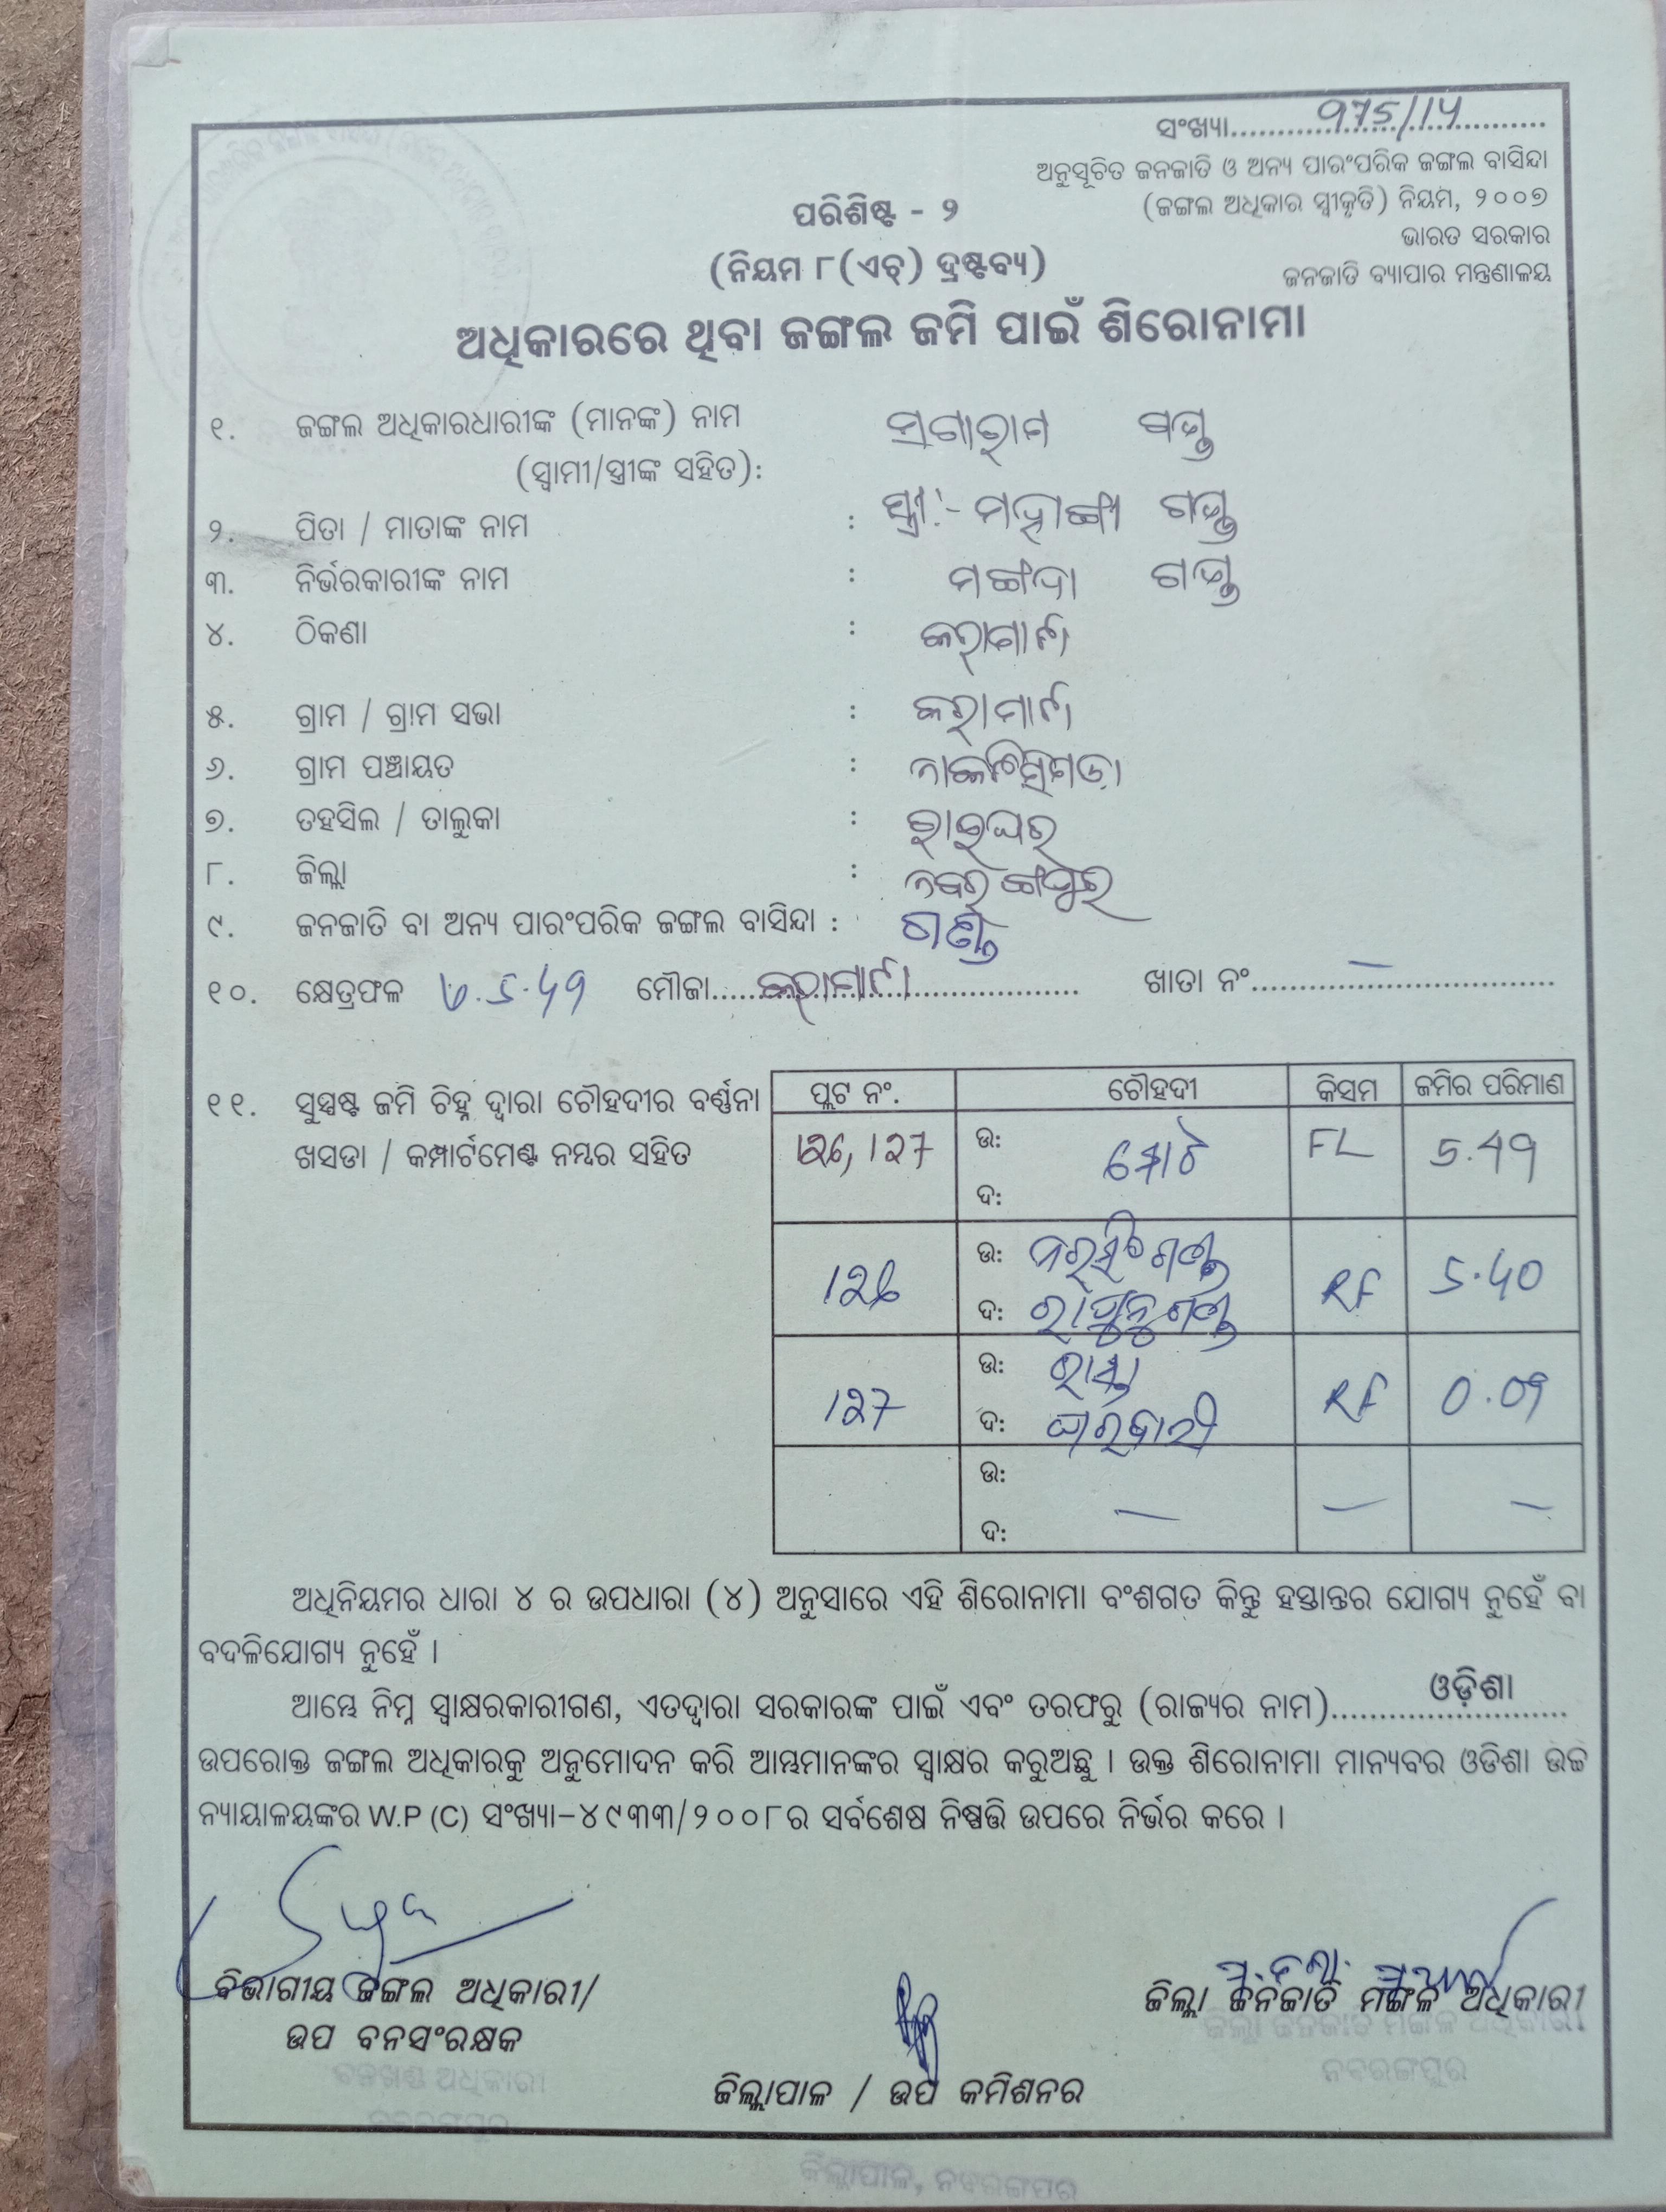 ସଂଖ୍ୟା..........୨୨୨୨୨..........
ଅନୁସୂଚିତ ଜନଜାତି ଓ ଅନ୍ୟ ପାରଂପରିକ ଜଙ୍ଗଲ ବାସିନ୍ଦା
(ଜଙ୍ଗଲ ଅଧିକାର ସ୍ୱୀକୃତି) ନିୟମ, ୨୦୦୭
ଭାରତ ସରକାର
ଜନଜାତି ବ୍ୟାପାର ମନ୍ତ୍ରଣାଳୟ
ପରିଶିଷ୍ଟ - ୨
(ନିୟମ ୮(ଏଚ୍) ଦ୍ରଷ୍ଟବ୍ୟ)
ଅଧିକାରରେ ଥିବା ଜଙ୍ଗଲ ଜମି ପାଇଁ ଶିରୋନାମା
୧. ଜଙ୍ଗଲ ଅଧିକାରଧାରୀଙ୍କ (ମାନଙ୍କ) ନାମ
(ସ୍ୱାମୀ/ସ୍ତ୍ରୀଙ୍କ ସହିତ):
୨. ପିତା / ମାତାଙ୍କ ନାମ : ସ୍ତ୍ରୀ:-
୩. ନିର୍ଭରକାରୀଙ୍କ ନାମ :
୪. ଠିକଣା :
୫. ଗ୍ରାମ / ଗ୍ରାମ ସଭା :
୬. ଗ୍ରାମ ପଞ୍ଚାୟତ :
୭. ତହସିଲ / ତାଲୁକା : ରାଇଘର
୮. ଜିଲ୍ଲା : ନବରଙ୍ଗପୁର
୯. ଜନଜାତି ବା ଅନ୍ୟ ପାରଂପରିକ ଜଙ୍ଗଲ ବାସିନ୍ଦା : ଗଣ୍ଡ
୧୦. କ୍ଷେତ୍ରଫଳ ମୌଜା.......... ଖାତା ନଂ.......... —
୧୧. ସୁସ୍ପଷ୍ଟ ଜମି ଚିହ୍ନ ଦ୍ୱାରା ଚୌହଦୀର ବର୍ଣ୍ଣନା
ଖସଡା / କମ୍ପାର୍ଟମେଣ୍ଟ ନମ୍ବର ସହିତ
ପ୍ଲଟ ନଂ. ଚୌହଦୀ କିସମ ଜମିର ପରିମାଣ
126, 127 ଉ: ଦ: ମୋଟ FL 5.49
126 ଉ: ନରସିଂ ଗଣ୍ଡ RF 5.40
ଦ:
127 ଉ: ରାସ୍ତା RF 0.09
ଦ: ଘରବାରୀ
ଉ: ଦ: — — —
ଅଧିନିୟମର ଧାରା ୪ ର ଉପଧାରା (୪) ଅନୁସାରେ ଏହି ଶିରୋନାମା ବଂଶଗତ କିନ୍ତୁ ହସ୍ତାନ୍ତର ଯୋଗ୍ୟ ନୁହେଁ ବା
ବଦଳିଯୋଗ୍ୟ ନୁହେଁ ।
ଆମ୍ଭେ ନିମ୍ନ ସ୍ୱାକ୍ଷରକାରୀଗଣ, ଏତଦ୍ୱାରା ସରକାରଙ୍କ ପାଇଁ ଏବଂ ତରଫରୁ (ରାଜ୍ୟର ନାମ)..........ଓଡ଼ିଶା..........
ଉପରୋକ୍ତ ଜଙ୍ଗଲ ଅଧିକାରକୁ ଅନୁମୋଦନ କରି ଆମ୍ଭମାନଙ୍କର ସ୍ୱାକ୍ଷର କରୁଅଛୁ । ଉକ୍ତ ଶିରୋନାମା ମାନ୍ୟବର ଓଡିଶା ଉଚ୍ଚ
ନ୍ୟାୟାଳୟଙ୍କର W.P (C) ସଂଖ୍ୟା-୪୯୩୩/୨୦୦୮ର ସର୍ବଶେଷ ନିଷ୍ପତ୍ତି ଉପରେ ନିର୍ଭର କରେ ।
ବିଭାଗୀୟ ଜଙ୍ଗଲ ଅଧିକାରୀ/
ଉପ ବନସଂରକ୍ଷକ
ଜିଲ୍ଲାପାଳ / ଉପ କମିଶନର
ଜିଲ୍ଲା ଜନଜାତି ମଙ୍ଗଳ ଅଧିକାରୀ
ଜିଲ୍ଲା ଜନଜାତି ମଙ୍ଗଳ ଅଧିକାରୀ
ନବରଙ୍ଗପୁର
ବନଖଣ୍ଡ ଅଧିକାରୀ
ନବରଙ୍ଗପୁର
ଜିଲ୍ଲାପାଳ, ନବରଙ୍ଗପୁର